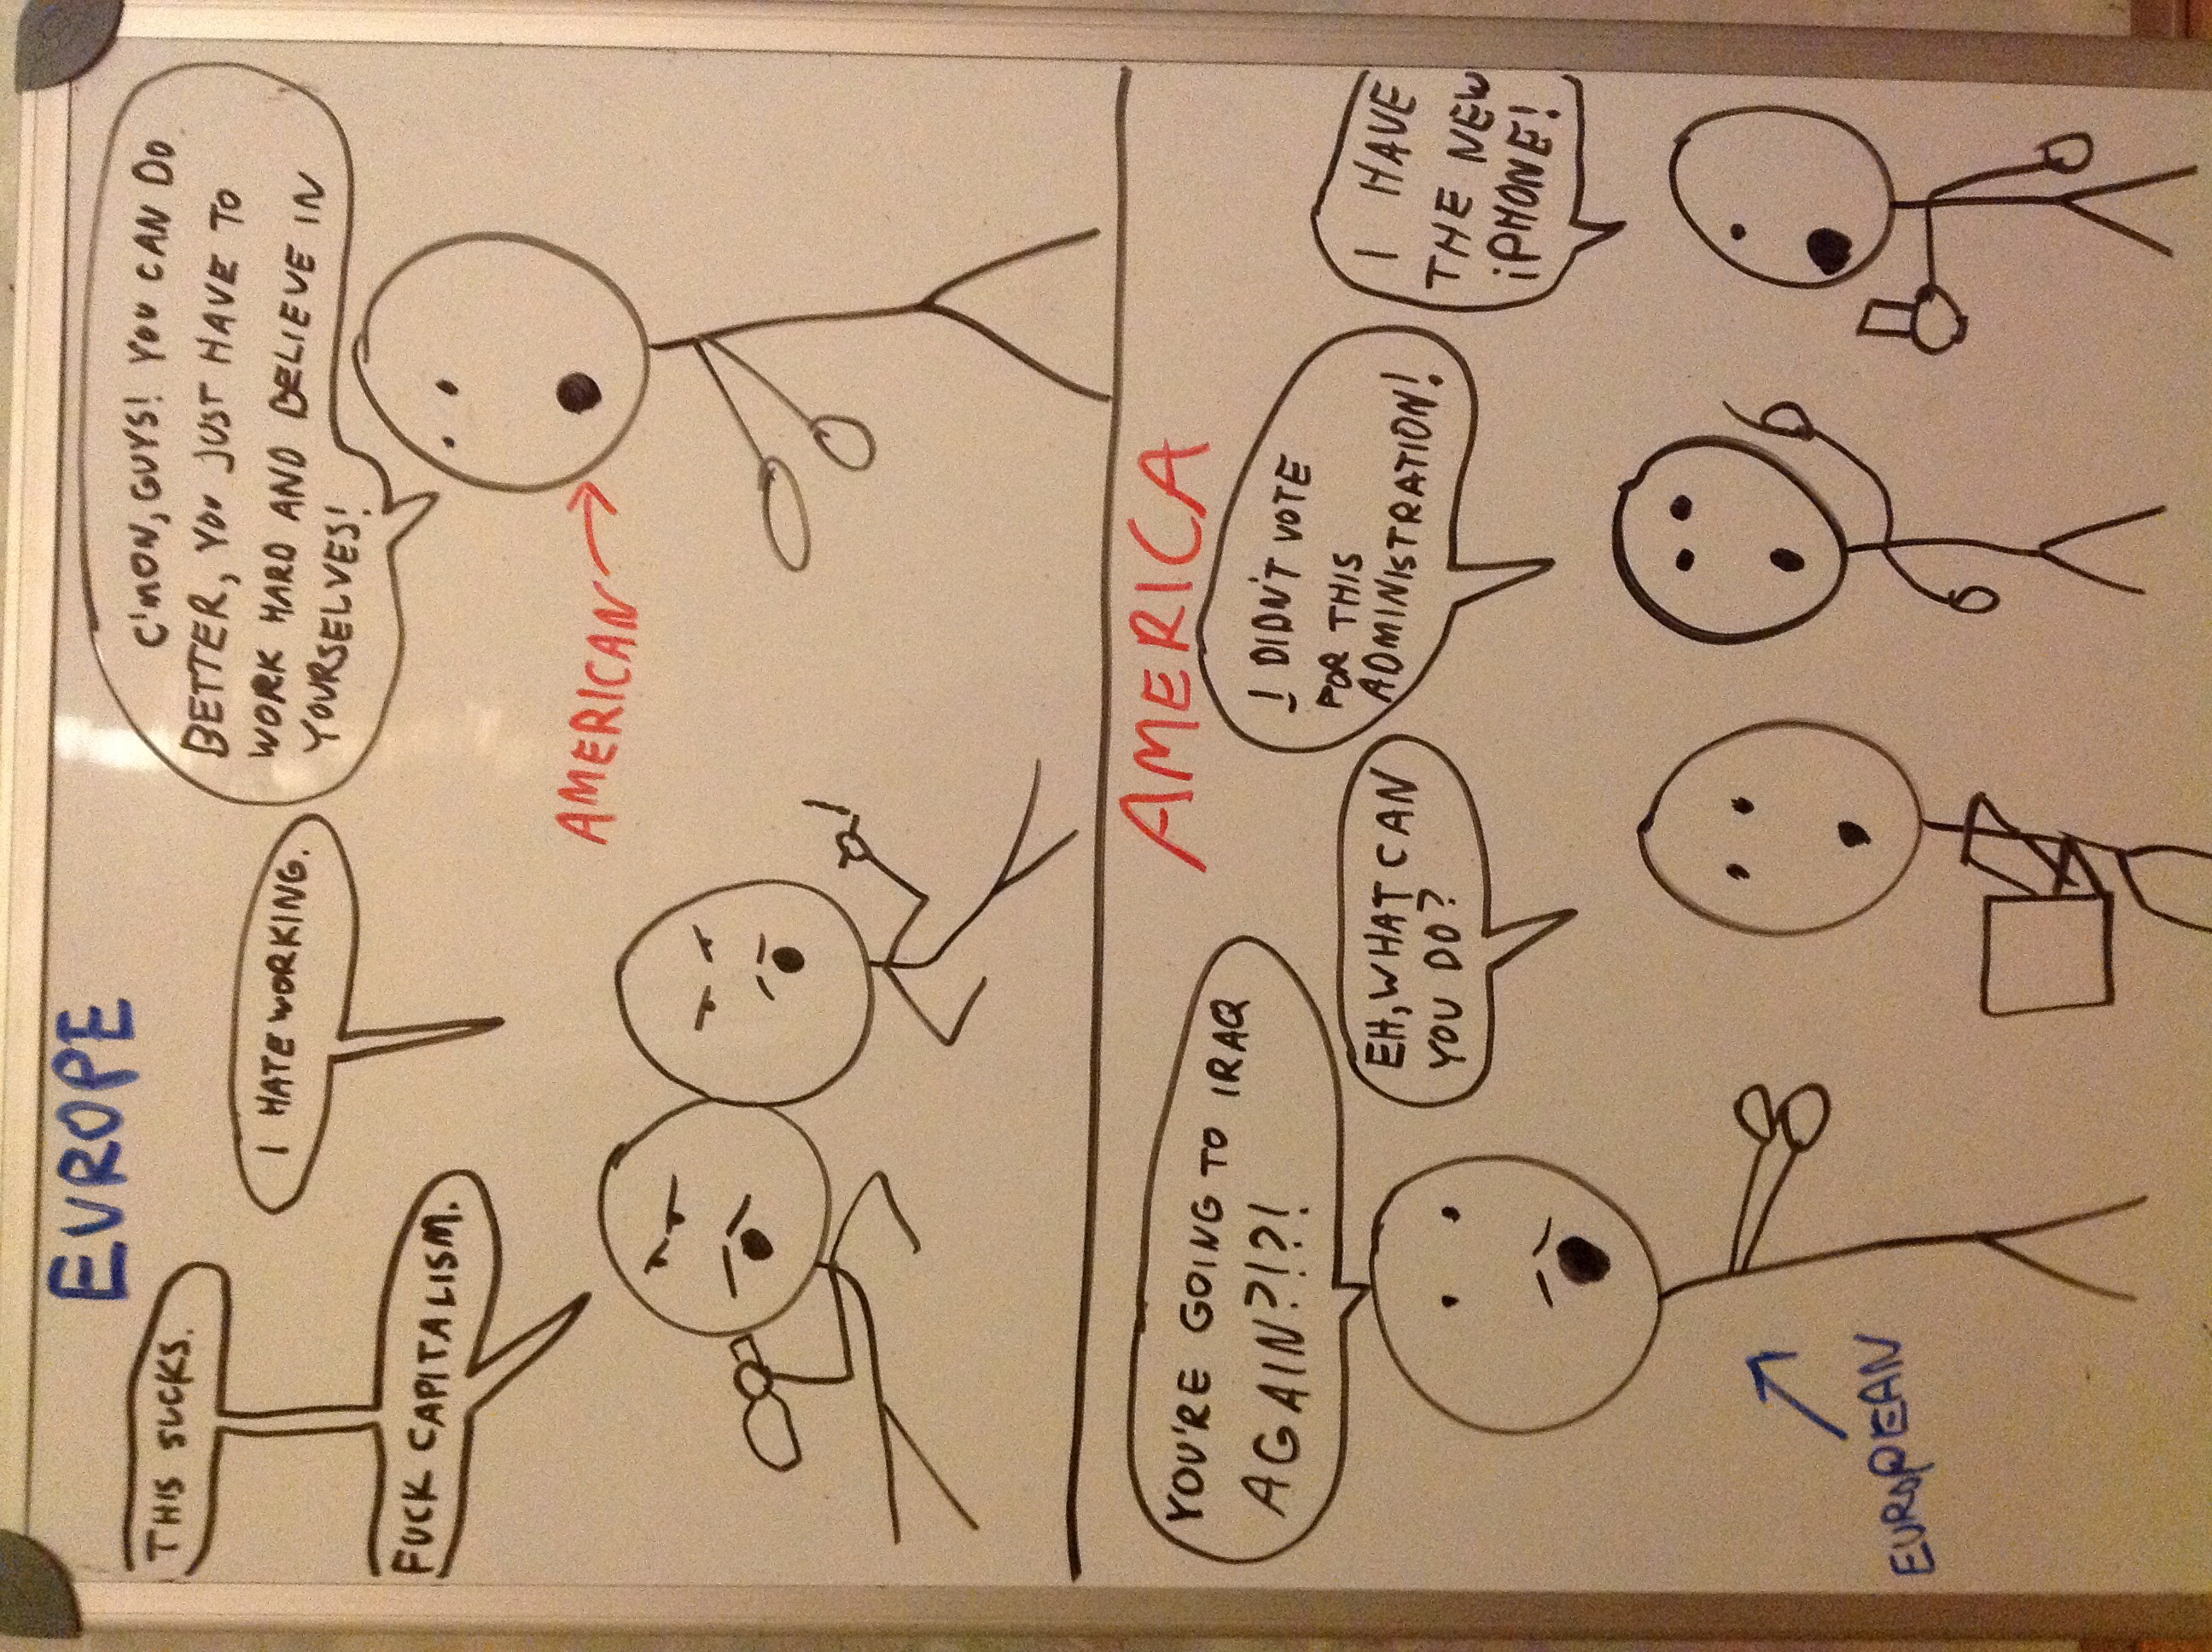 EUROPE
THIS SUCKS.
FUCK CAPITALISM.
I HATE WORKING.
C'MON, GUYS! YOU CAN DO
BETTER, YOU JUST HAVE TO
WORK HARD AND BELIEVE IN
YOURSELVES!
AMERICAN
AMERICA
YOU'RE GOING TO IRAQ
AGAIN?!?!
EH, WHAT CAN
YOU DO?
I DIDN'T VOTE
FOR THIS
ADMINISTRATION!
I HAVE
THE NEW
iPHONE!
EUROPEAN